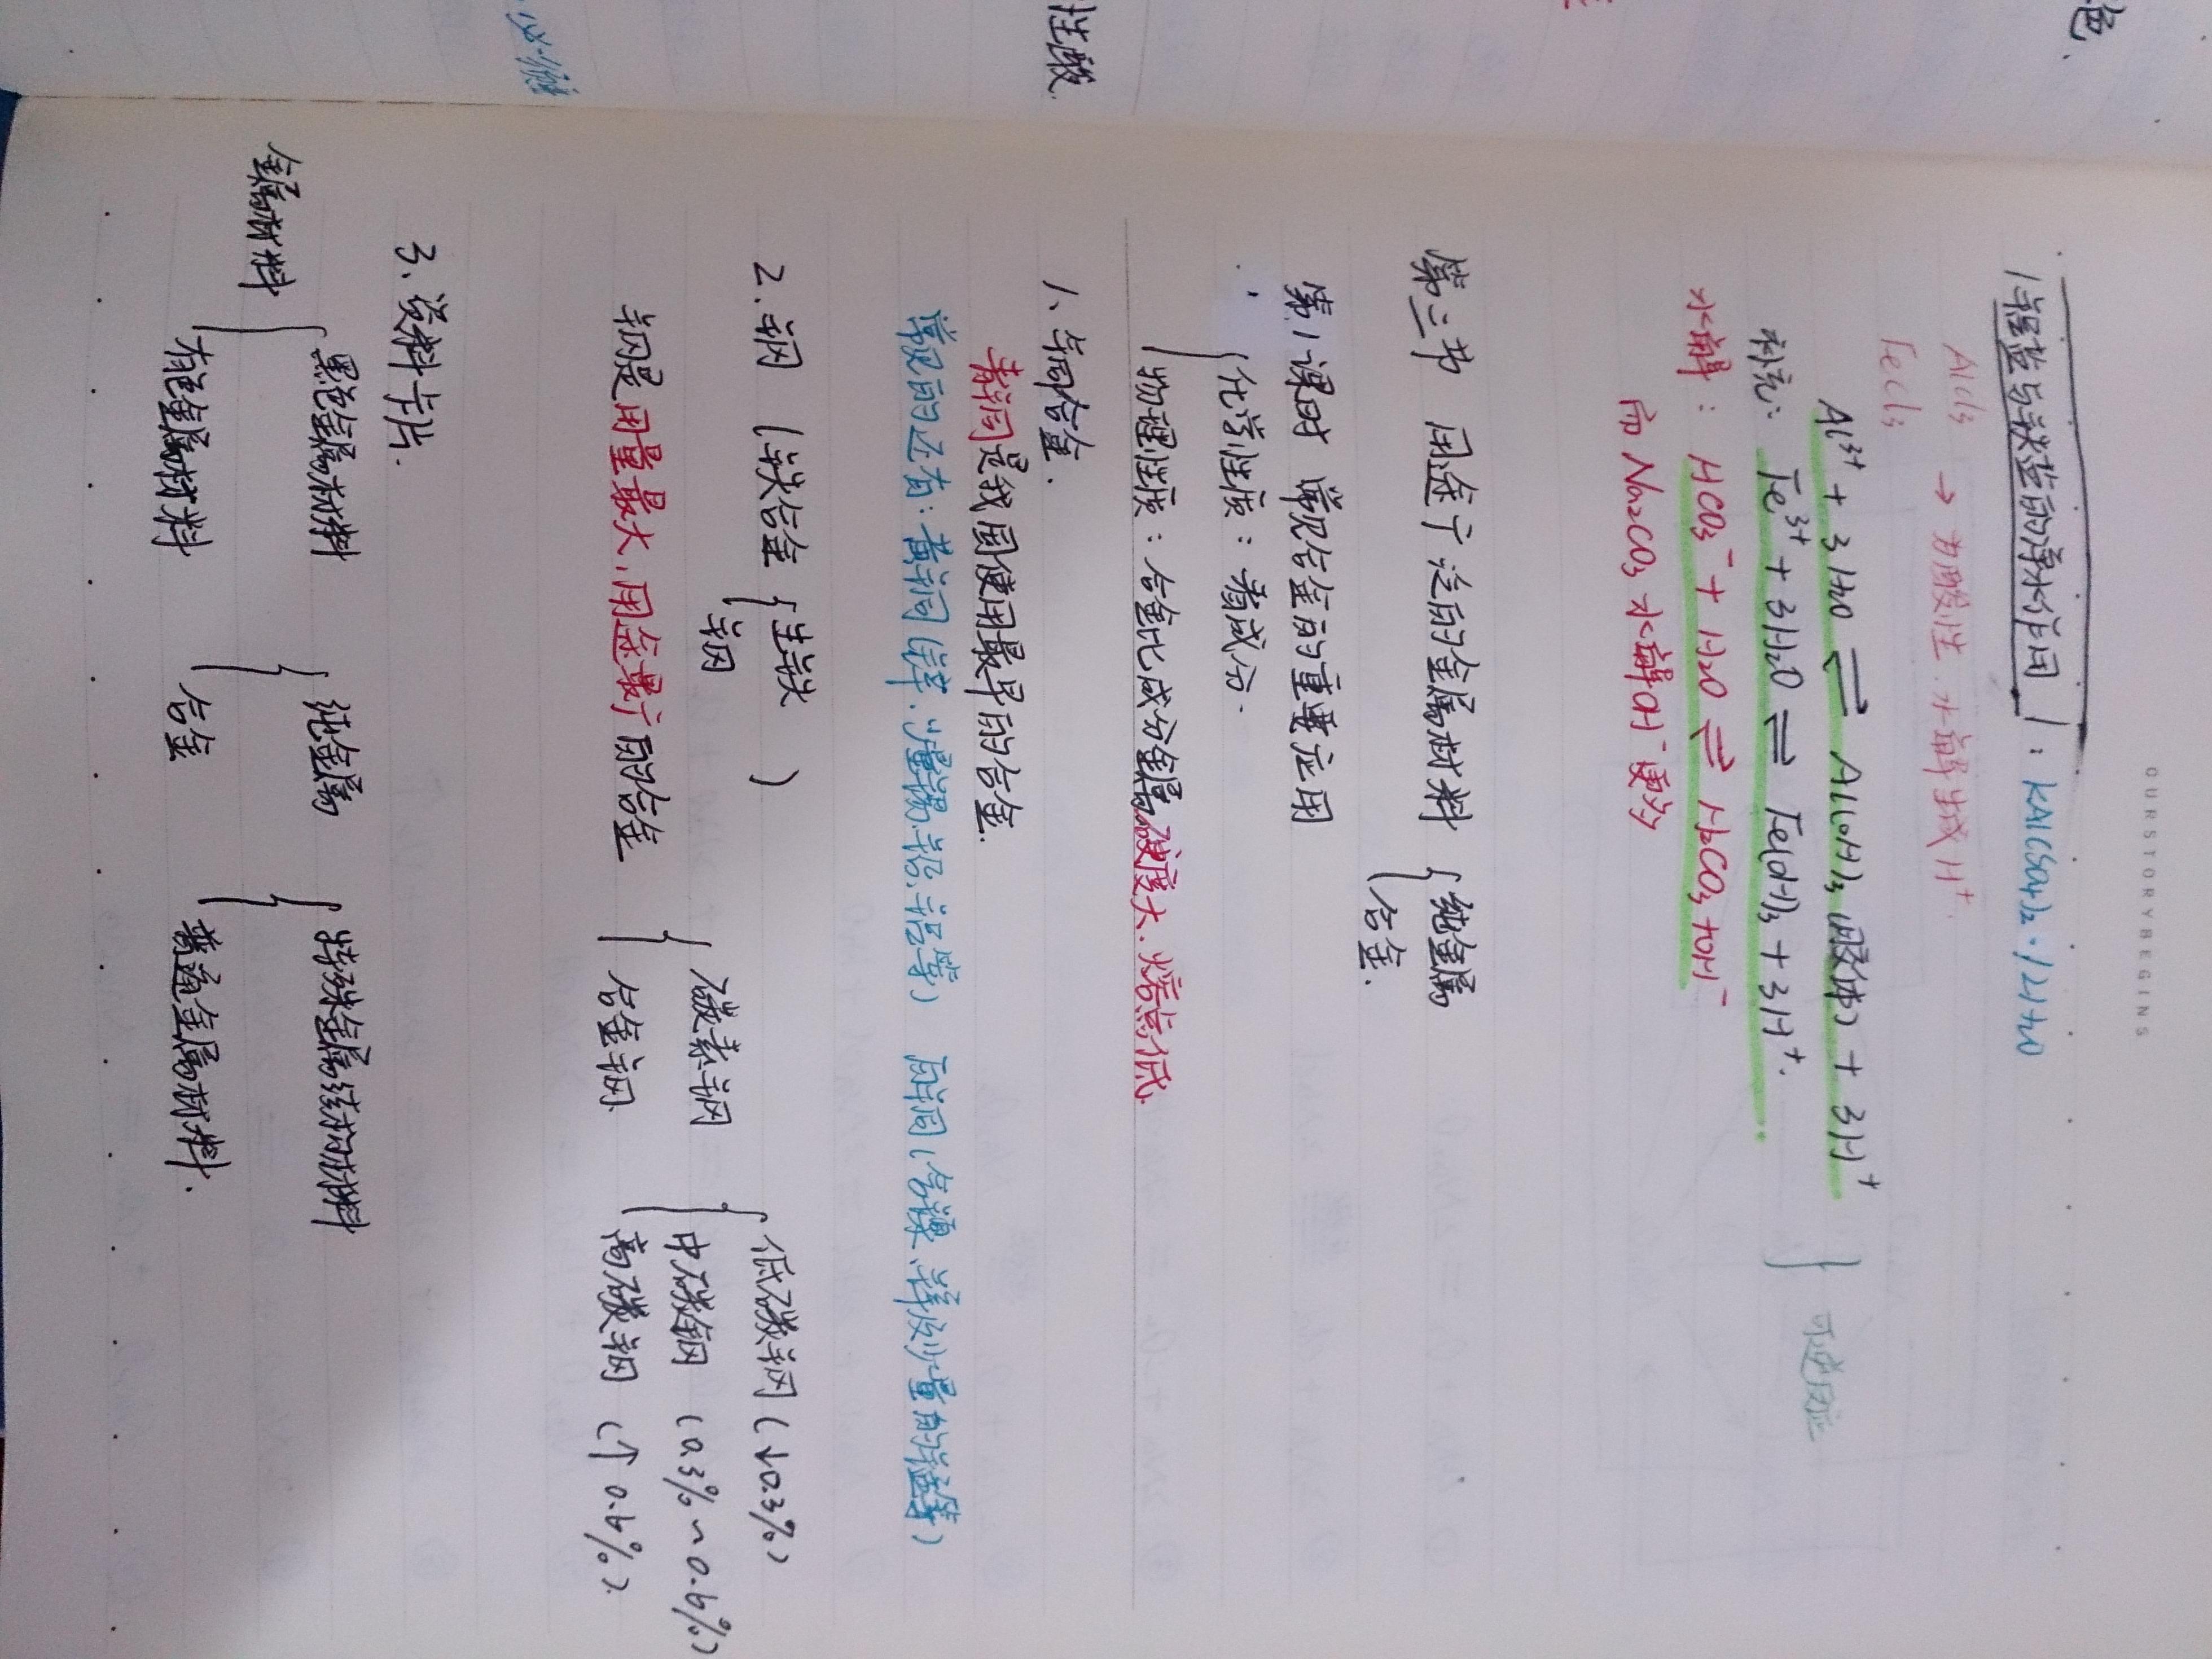 OURSTORYBEGINS
铝盐与铁盐的净水作用：KAl(SO₄)₂·12H₂O
AlCl₃
FeCl₃ → 为酸性.水解生成H⁺.
Al³⁺ + 3H₂O ⇌ Al(OH)₃(胶体) + 3H⁺
补充： Fe³⁺ + 3H₂O ⇌ Fe(OH)₃ + 3H⁺.
可逆反应
水解： HCO₃⁻ + H₂O ⇌ H₂CO₃ + OH⁻
而 Na₂CO₃ 水解OH⁻更多
第三节 用途广泛的金属材料 { 纯金属
合金.
第1课时 常见合金的重要应用
化学性质：看成分.
物理性质：合金比成分金属硬度大.熔点低.
1、铜合金.
青铜是我国使用最早的合金.
常见的还有：黄铜(锌.少量锡.铅.铝等) 白铜(含镍、锌及少量的锰等)
2.钢 (铁合金 { 生铁
钢 )
钢是用量最大.用途最广的合金
碳素钢
合金钢.
低碳钢(↓0.3%)
中碳钢 (0.3%~0.6%)
高碳钢 (↑0.6%).
3、资料卡片.
金属材料
黑色金属材料
有色金属材料
纯金属
合金
特殊金属结构材料
普通金属材料.
色.
性酸